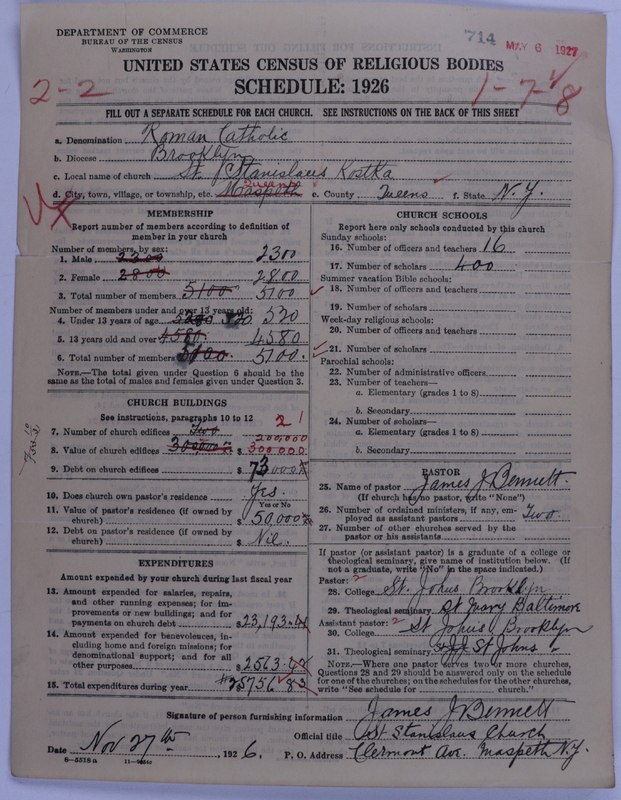 DEPARTMENT OF COMMERCE
BUREAU OF THE CENSUS
WASHINGTON
714 MAY 6 1927
UNITED STATES CENSUS OF RELIGIOUS BODIES
SCHEDULE: 1926
2-2
1-7-8
FILL OUT A SEPARATE SCHEDULE FOR EACH CHURCH. SEE INSTRUCTIONS ON THE BACK OF THIS SHEET
a. Denomination Roman Catholic
b. Diocese Brooklyn
c. Local name of church St. Stanislaus Kostka
d. City, town, village, or township, etc. Maspeth Queens e. County Queens f. State N.Y.
MEMBERSHIP
Report number of members according to definition of
member in your church
Number of members, by sex:
1. Male 2300 2300
2. Female 2800 2800
3. Total number of members 5100 5100
Number of members under and over 13 years old:
4. Under 13 years of age 520 520
5. 13 years old and over 4580 4580
6. Total number of members 5100 5100
NOTE.—The total given under Question 6 should be the
same as the total of males and females given under Question 3.
CHURCH BUILDINGS
See instructions, paragraphs 10 to 12
7. Number of church edifices Two 2
200,000
8. Value of church edifices 300000 $ 300000
9. Debt on church edifices $ 73000
10. Does church own pastor's residence Yes.
Yes or No
11. Value of pastor's residence (if owned by
church) $ 50,000
12. Debt on pastor's residence (if owned by
church) $ Nil.
EXPENDITURES
Amount expended by your church during last fiscal year
13. Amount expended for salaries, repairs,
and other running expenses; for im-
provements or new buildings; and for
payments on church debt $ 23,193
14. Amount expended for benevolences, in-
cluding home and foreign missions; for
denominational support; and for all
other purposes $ 2563
15. Total expenditures during year $ 25756 83
CHURCH SCHOOLS
Report here only schools conducted by this church
Sunday schools:
16. Number of officers and teachers 16
17. Number of scholars 400
Summer vacation Bible schools:
18. Number of officers and teachers
19. Number of scholars
Week-day religious schools:
20. Number of officers and teachers
21. Number of scholars
Parochial schools:
22. Number of administrative officers
23. Number of teachers—
a. Elementary (grades 1 to 8)
b. Secondary
24. Number of scholars—
a. Elementary (grades 1 to 8)
b. Secondary
PASTOR
25. Name of pastor James J Bennett.
(If church has no pastor, write "None")
26. Number of ordained ministers, if any, em-
ployed as assistant pastors Two.
27. Number of other churches served by the
pastor or his assistants
If pastor (or assistant pastor) is a graduate of a college or
theological seminary, give name of institution below. (If
not a graduate, write "No" in the space indicated.)
Pastor: 2
28. College St. Johns Brooklyn
29. Theological seminary St Mary Baltimore
Assistant pastor: 2
30. College St Johns Brooklyn
31. Theological seminary St Johns "
NOTE.—Where one pastor serves two or more churches,
Questions 28 and 29 should be answered only on the schedule
for one of the churches; on the schedules for the other churches,
write "See schedule for church."
Signature of person furnishing information James J Bennett
Official title St Stanislaus Church
Date Nov 27th, 1926. P. O. Address Clermont Ave. Maspeth N.Y.
8—5518 a